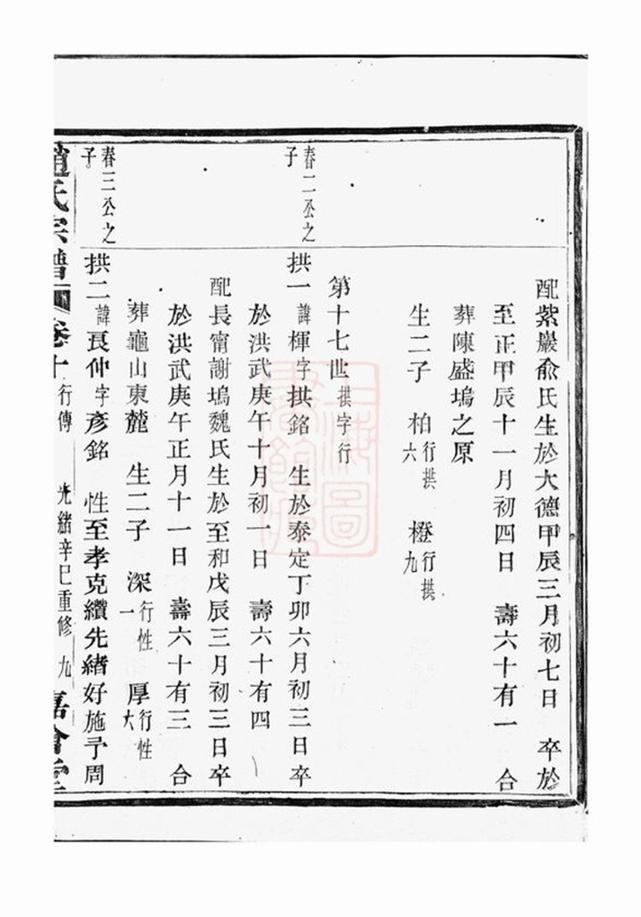 配紫巖俞氏生於大德甲辰三月初七日 卒於
至正甲辰十一月初四日 壽六十有一 合
葬陳盛塢之原
生二子 柏行拱六 橙行拱九
第十七世拱字行
春二公之子
拱一諱楎字拱銘 生於泰定丁卯六月初三日卒
於洪武庚午十月初一日 壽六十有四
配長甯謝塢魏氏生於至和戊辰三月初三日卒
於洪武庚午正月十一日 壽六十有三 合
葬龜山東麓 生二子 深行性一 厚行性大
春三公之子
拱二諱長仲字彥銘 性至孝克纘先緒好施予周
趙氏宗譜 卷十 行傳 光緒辛巳重修 九 嘉會堂
上海圖書館藏